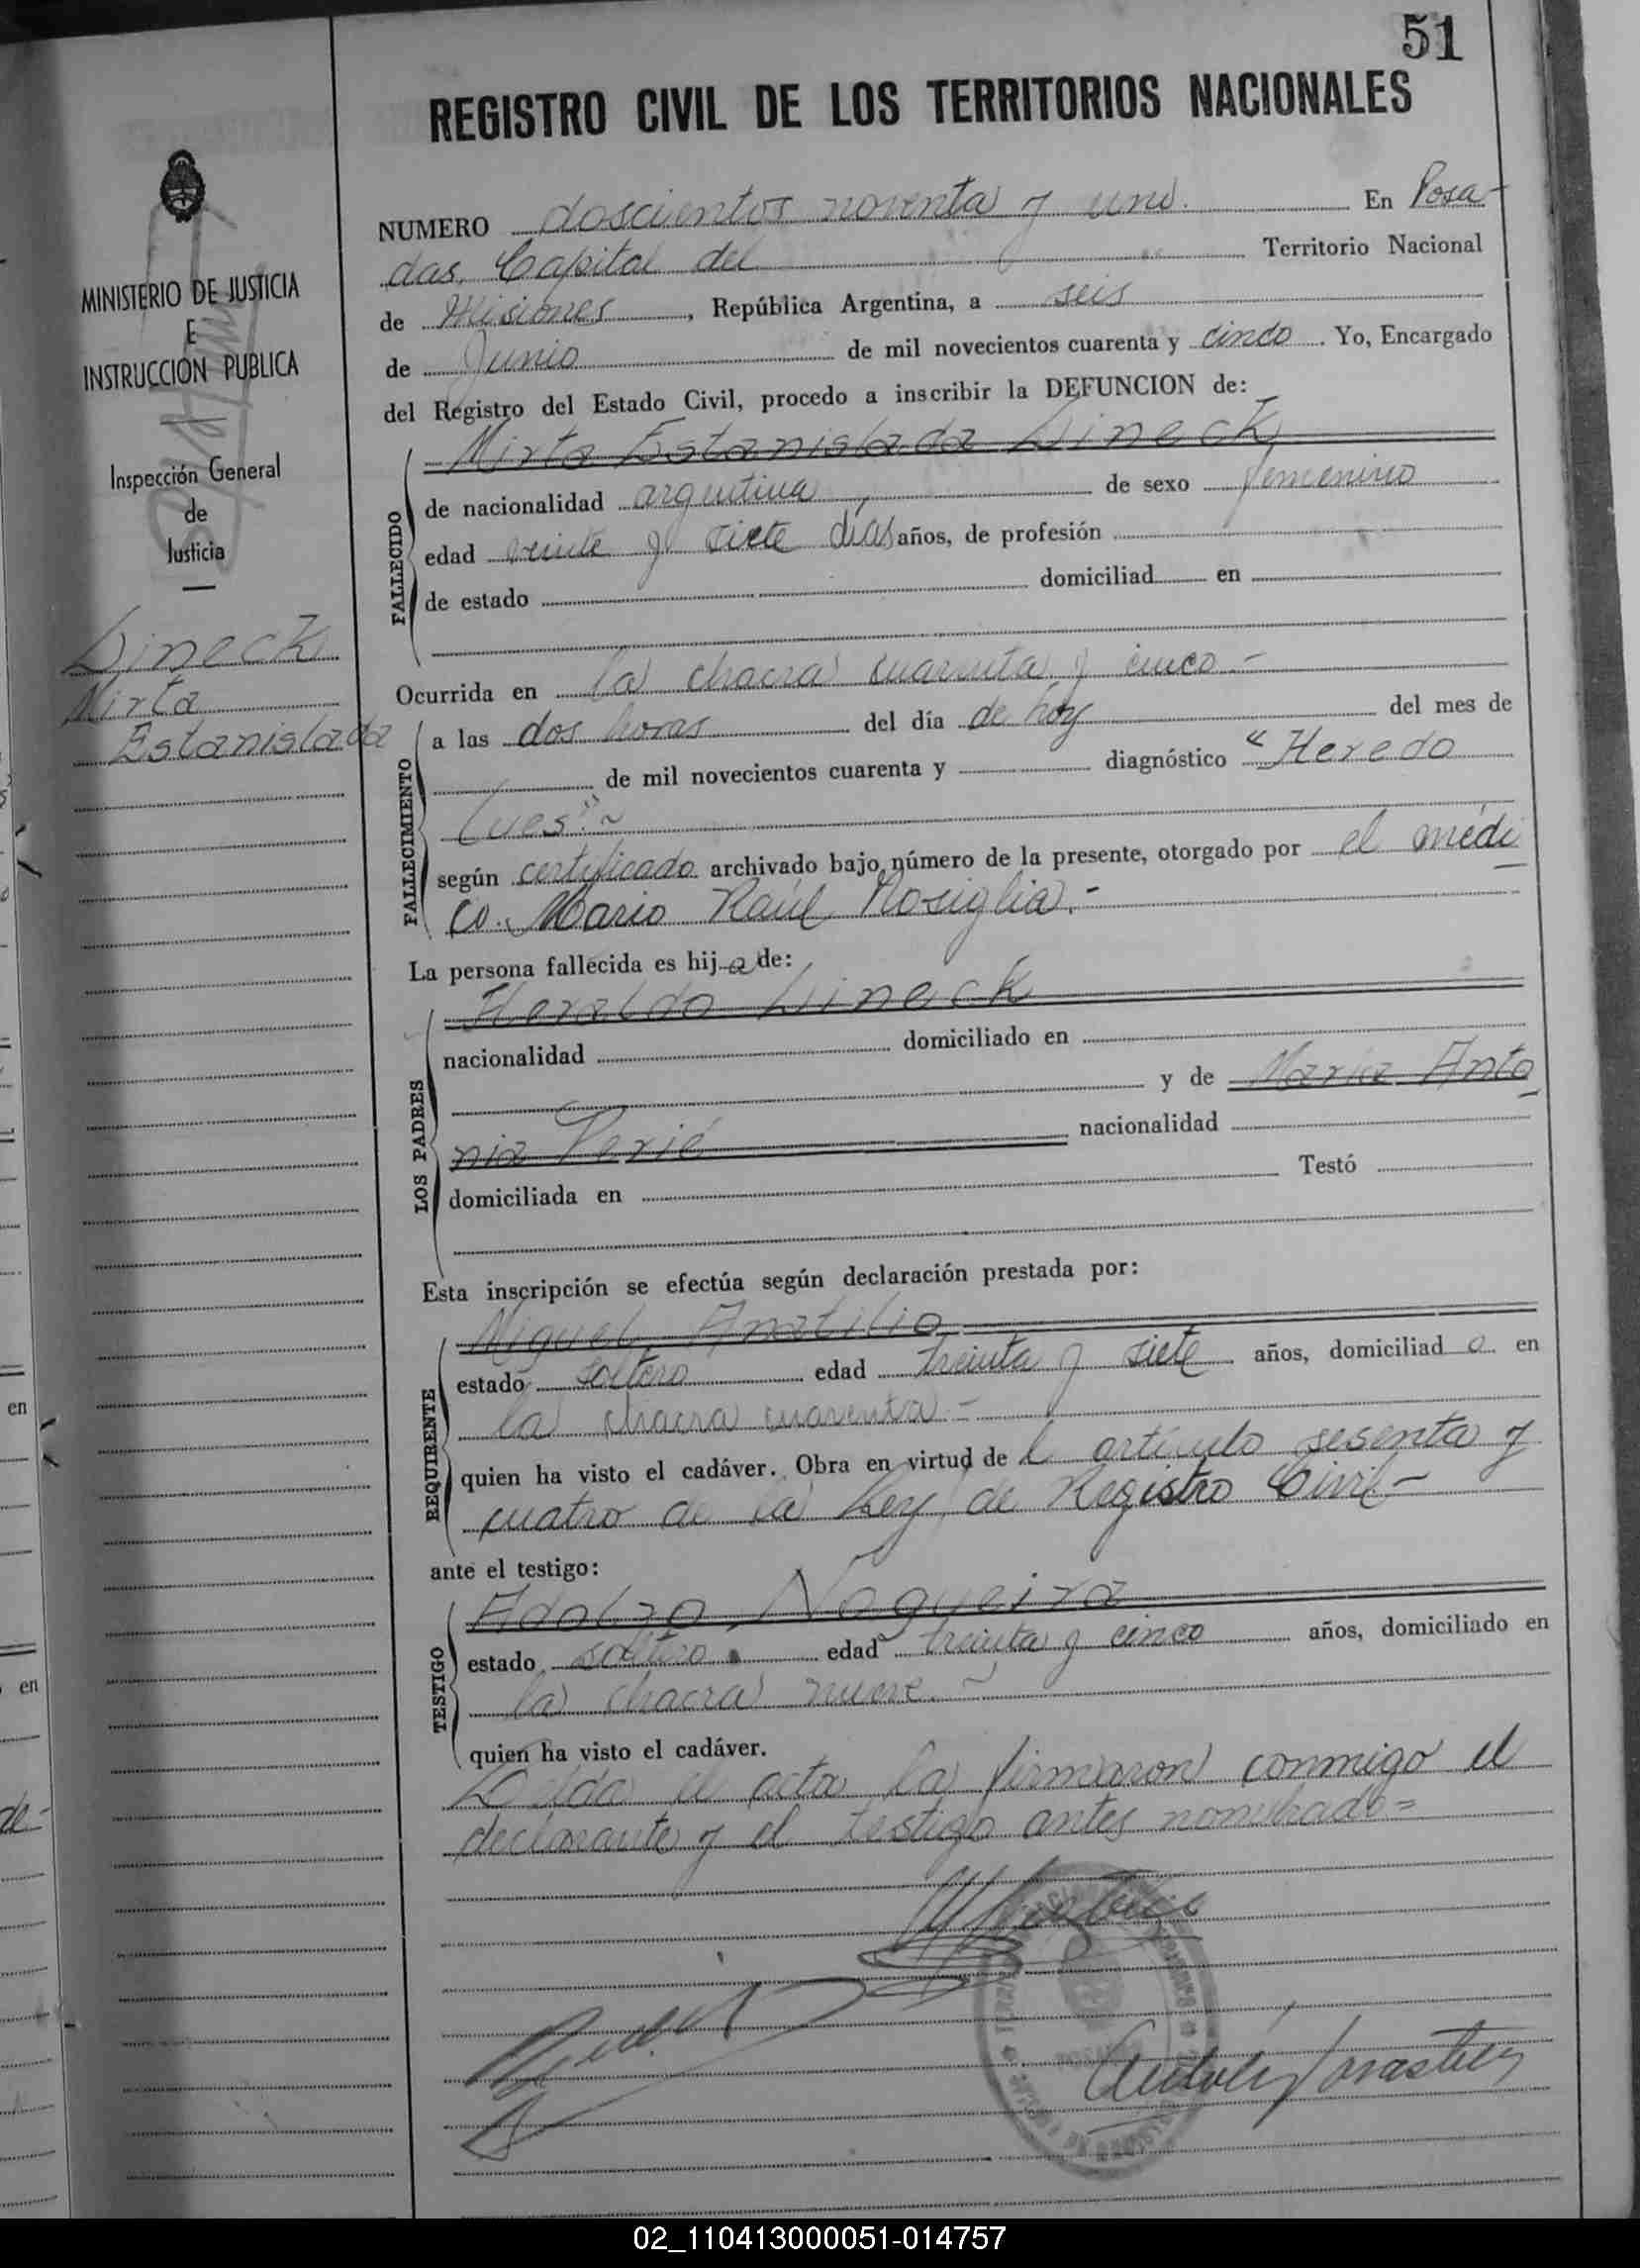 51
REGISTRO CIVIL DE LOS TERRITORIOS NACIONALES
MINISTERIO DE JUSTICIA
E
INSTRUCCIÓN PUBLICA
Inspección General
de
Justicia
Dineck
Mirta
Estanislada
NUMERO doscientos noventa y uno. En Posa-
das, Capital del Territorio Nacional
de Misiones, República Argentina, a seis
de Junio de mil novecientos cuarenta y cinco. Yo, Encargado
del Registro del Estado Civil, procedo a inscribir la DEFUNCION de:
Mirta Estanislada Dineck
FALLECIDO
de nacionalidad argentina, de sexo femenino
edad veinte y siete días años, de profesión
de estado domiciliad en
Ocurrida en la chacra cuarenta y cinco.-
FALLECIMIENTO
a las dos horas del día de hoy del mes de
de mil novecientos cuarenta y diagnóstico "Heredo
Lues".~
según certificado archivado bajo número de la presente, otorgado por el médi
co. Mario Raúl Rosiglia.-
La persona fallecida es hija de:
LOS PADRES
Heraldo Dineck
nacionalidad domiciliado en
y de María Anto
nia
nacionalidad
domiciliada en Testó
Esta inscripción se efectúa según declaración prestada por:
REQUIRENTE
Miguel
estado soltero edad treinta y siete años, domiciliado en
la chacra cuarenta-
quien ha visto el cadáver. Obra en virtud del artículo sesenta y
cuatro de la Ley de Registro Civil-
ante el testigo:
TESTIGO
Adolfo Nogueira
estado soltero edad treinta y cinco años, domiciliado en
la chacra nueve.-
quien ha visto el cadáver.
Leída el acta la firmaron conmigo el
declarante y el testigo antes nombrado=
02_110413000051-014757